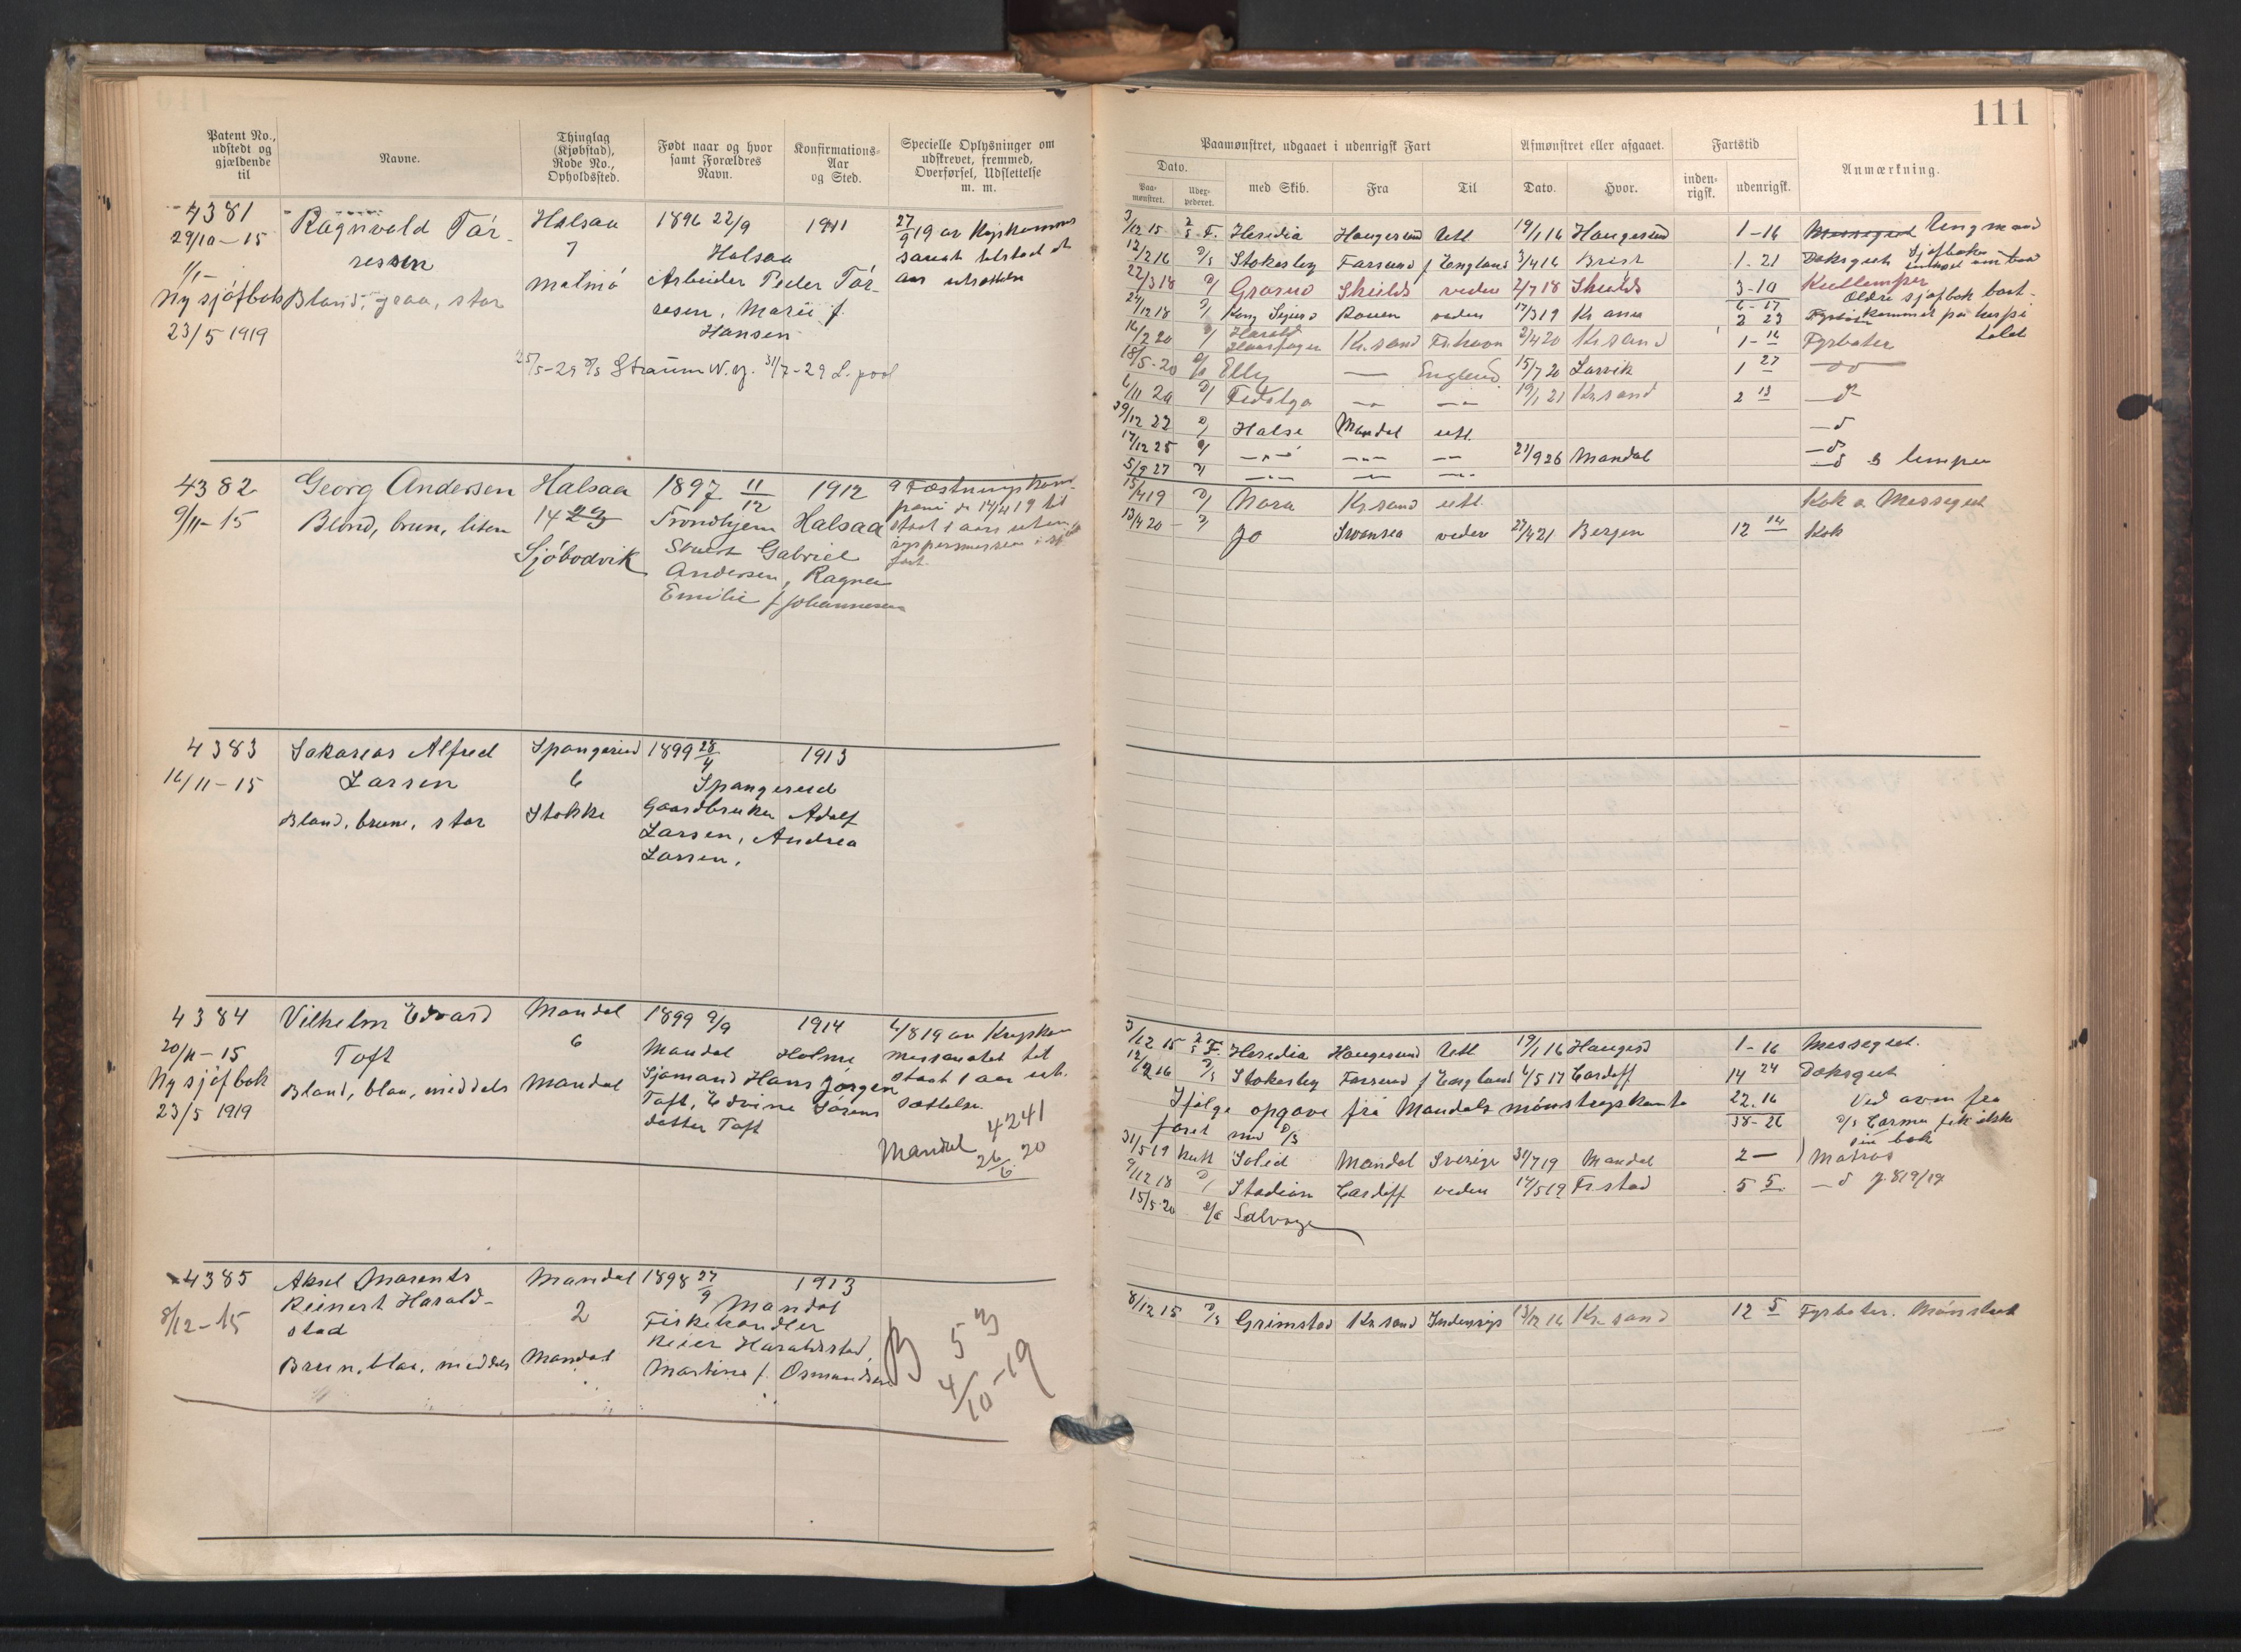 111
Patent No., udstedt og gjældende til
Navne.
Thinglag (Kjøbstad), Rode No., Opholdssted.
Født naar og hvor samt Forældres Navn.
Konfirmations-Aar og Sted.
Specielle Oplysninger om udskrevet, fremmed, Overførsel, Udslettelse m. m.
Paamønstret, udgaaet i udenrigsk Fart
Afmønstret eller afgaaet.
Fartstid
Anmærkning.
Dato.
Paamønstret.
Udexpederet.
med Skib.
Fra
Til
Dato.
Hvor.
indenrigsk.
udenrigsk.
4381
29/10-15
Ny sjøfbok
23/5 1919
Ragnvald Tørressen
Blond, graa, stor
Halsaa
7
Malmø
1896 22/9
1911
Halsaa
Arbeider Peder Tørresen, Marie f. Hansen
27/9 19 av
25/5-29 D/S Straum W. og. 31/7-29 L. pool
4382
9/11-15
Georg Andersen
Blond, brun, liten
Halsaa
14 29
Sjøbodvik
1897 11/12
1912
Trondhjem Halsaa
Gabriel
Andersen, Ragna
Emilie f Johannesen
4383
16/11-15
Sakarias Alfred
Larsen
Blond, brune, stor
Spangereid
6
Stokke
1899 28/4
1913
Spangereid
Gaardbruker Adolf
Larsen, Andrea
Larsen.
4384
20/11-15
Ny sjøfbok
23/5 1919
Vilhelm Edvard
Toft
Blond, blaa, middels
Mandal
6
Mandal
1899 9/9
1914
Mandal Holme
Sjømand Hans Jørgen
Toft, Edvine Sørensdatter Toft
4/8 19 av
staat 1 aar
4241
Mandal 26/6 20
4385
8/12-15
Aksel Marents
Reinert Haraldstad
Brun, blaa, middels
Mandal
2
Mandal
1898 27/9
1913
Mandal
Fiskehandler
Reier Haraldstad,
Martine f. Osmundsen
B 53
4/10-19
3/12 15 Heredia Haugesund Utl 19/1 16 Haugesund 1-16 Messegut Ungmand
12/2 16 D/S Stokesley Farsund f England 3/4 16 Brest 1-21 Dæksgut
22/3 18 Skields veden 2/7 18 Skields 3-10 Kullemper
Ældre sjøfbok bort-
24/12 18 Kong Sigurd Rouen veden 17/3 19 Kr. 2 23
16/2 20 Harald Haarfager Kr.sand Fr.havn 2/4 20 Kr.sand 1-16 Fyrbøter
18/5-20 Elly England 15/7 20 Larvik 1 27
6/11 20 Fedolga 19/1 21 Kr.sand 2 13
29/12 22 Halse Mandal utl.
17/12 25 21/9 26 Mandal
5/9 27 lemper
15/4 19 Nora Kr.sand utl. Kok o. Messegut
13/4 20 Jo Swansea veden 27/4 21 Bergen 12 14 Kok
3/12 15 Heredia Haugesund Utl 19/1 16 Haugesd 1-16 Messegut.
12/2 16 D/S Stokesley Farsund f England 4/5 17 Cardiff 14 24 Dæksgut
Ifølge opgave fra Mandals mønstringskontor 22.16 Ved avm fra
faret med D/S 38-26 D/S Carma fik ikke
sin bok
31/5 19 Kutt Solid Mandal Sverige 31/7 19 Mandal 2 — Matros
9/12 18 Stadion Cardiff veden 14/5 19 Fr.stad 5 5
15/5 20 Salvage
8/12 15 D/S Grimstad Kr.sand Indenrigs 13/12 16 Kr.sand 12 5 Fyrbøter.